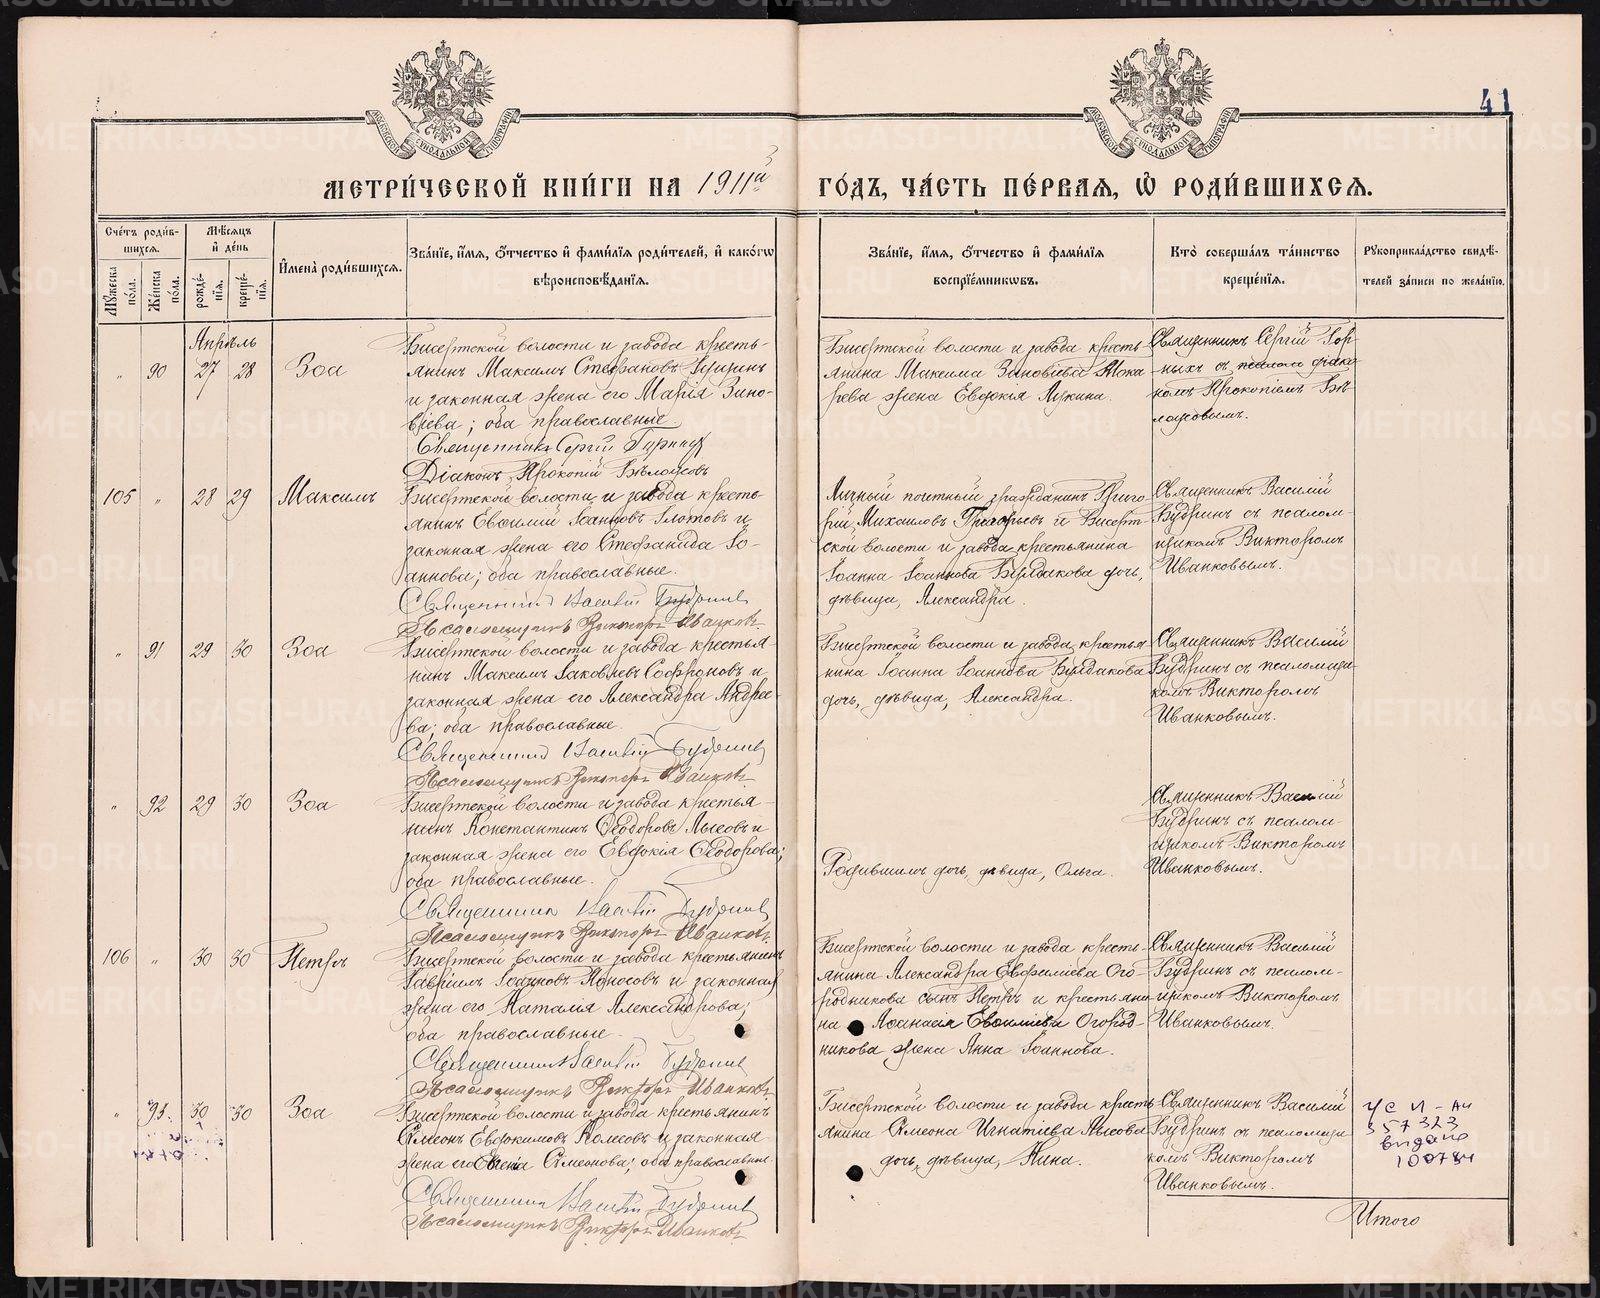 41
МЕТРИ́ЧЕСКОЙ КНИ́ГИ НА 1911й ГО́ДЪ, ЧА́СТЬ ПЕ́РВАЯ, Ѡ҆ РОДИ́ВШИХСЯ.
Сче́тъ роди́в-
шихся.
Мꙋ́жеска по́ла.
Же́нска по́ла.
Мѣ́сяцъ
и҆ де́нь
рожде́-
нія.
креще́-
нія.
И҆мена̀ роди́вшихся.
Зва́ніе, и҆́мя, ѻ҆́тчество и҆ фами́лїя роди́телей, и҆ како́гѡ
вѣроисповѣ́данїя.
Зва́нїе, и҆́мя, ѻ҆́тчество и҆ фами́лїя
воспрїе́мникѡвъ.
Кто̀ соверша́лъ та́инство
креще́нїя.
Рꙋкоприкла́дство свидѣ́-
телей за́писи по жела́нїю.
Апрѣль
„ 90 27 28 Зоа
Бисертской волости и завода кресть-
янинъ Максимъ Стефановъ
и законная жена его Марія Зино-
віева; оба православные
Священникъ Сергій Горныхъ
Діаконъ Прокопій Бѣлоусовъ
Бисертской волости и завода кресть-
янина Максима Зиновіева Тока-
рева жена Евдокія Лукина.
Священникъ Сергій Гор-
ныхъ съ діако-
номъ Прокопіемъ Бѣ-
лоусовымъ.
105 „ 28 29 Максимъ
Бисертской волости и завода кресть-
янинъ Евфимій Іоанновъ Плотовъ и
законная жена его Стефанида Іо-
аннова; оба православные.
Священникъ Василій Будринъ
Псаломщикъ Викторъ Иванковъ
Личный почтный гражданинъ Григо-
рій Михаиловъ Григорьевъ и Бисерт-
ской волости и завода крестьянина
Іоанна Іоаннова Булдакова дочь,
дѣвица, Александра.
Священникъ Василій
Будринъ съ псалом-
щикомъ Викторомъ
Иванковымъ.
„ 91 29 30 Зоа
Бисертской волости и завода крестья-
нинъ Максимъ Іаковлевъ Софроновъ и
законная жена его Александра Андре-
ва; оба православные.
Священникъ Василій Будринъ
Псаломщикъ Викторъ Иванковъ
Бисертской волости и завода крестья-
нина Іоанна Іоаннова Булдакова
дочь, дѣвица, Александра.
Священникъ Василій
Будринъ съ псаломщи-
комъ Викторомъ
Иванковымъ.
„ 92 29 30 Зоа
Бисертской волости и завода крестья-
нинъ Константинъ Ѳеодоровъ Лысовъ и
законная жена его Евдокія Ѳеодорова;
оба православные.
Священникъ Василій Будринъ
Псаломщикъ Викторъ Иванковъ
Родившимъ дочь, дѣвица, Ольга.
Священникъ Василій
Будринъ съ псалом-
щикомъ Викторомъ
Иванковымъ.
106 „ 30 30 Петръ
Бисертской волости и завода крестьянинъ
Гавріилъ Іоанновъ Поносовъ и законная
жена его Наталія Александрова;
оба православные.
Священникъ Василій Будринъ
Псаломщикъ Викторъ Иванковъ
Бисертской волости и завода кресть-
янина Александра Евфиміева Ого-
родникова сынъ Петръ и крестьяни-
на Аѳанасія Евфиміева Огород-
никова жена Анна Іоаннова.
Священникъ Василій
Будринъ съ псалом-
щикомъ Викторомъ
Иванковымъ.
„ 93. 30 30 Зоа
Бисертской волости и завода крестьянинъ
Симеонъ Евдокимовъ Колесовъ и законная
жена его Симеонова; оба православные
Священникъ Василій Будринъ
Псаломщикъ Викторъ Иванковъ
Бисертской волости и завода кресть-
янина Симеона Игнатіева Лысова
дочь, дѣвица, Нина.
Священникъ Василій
Будринъ съ псаломщи-
комъ Викторомъ
Иванковымъ.
357323
Итого